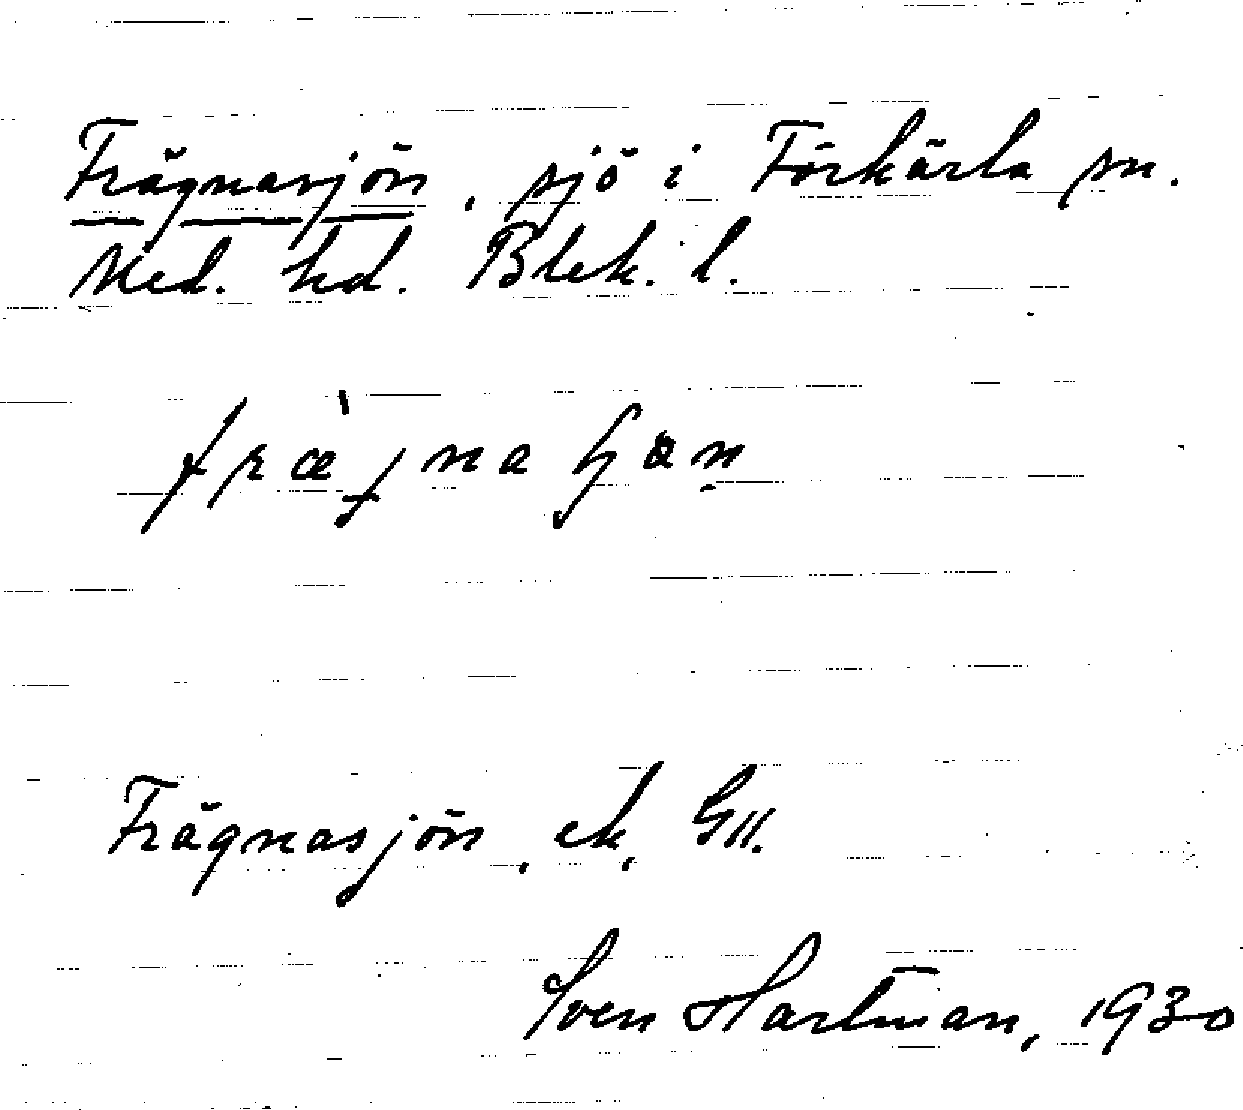 Frägnasjön, sjö i Förkärla sn.
Med. hd. Blek. l.
Frägnasjön, ek, GII.
Sven Hartman, 1930